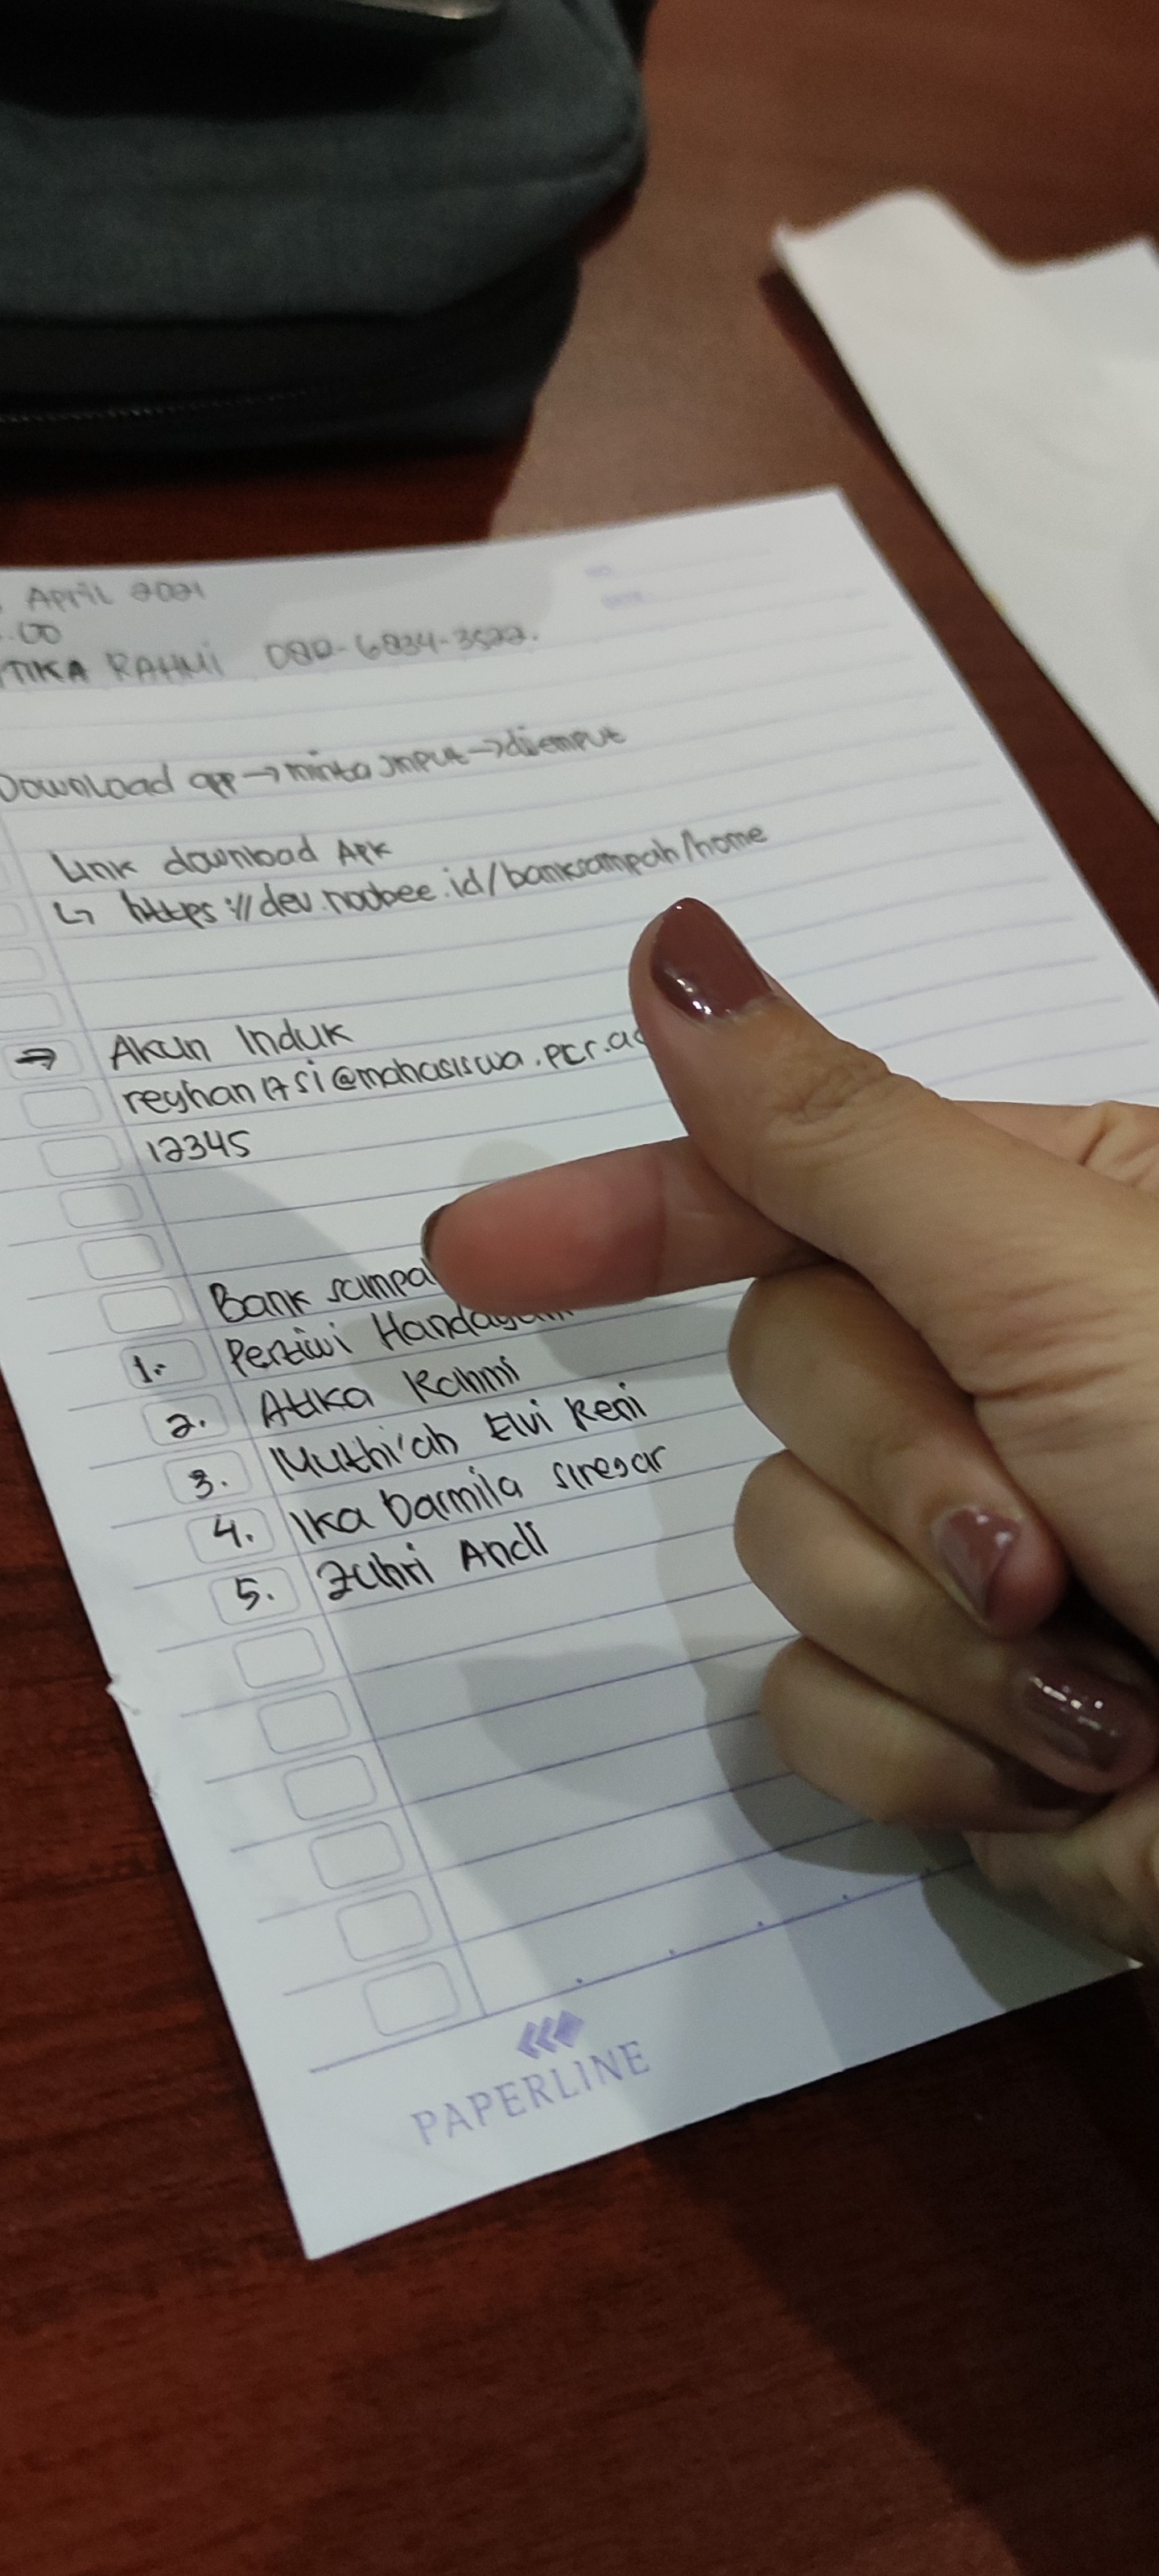 April 2021
.00
TIKA RAHMI 082-6834-3522.
Download app → minta input → dijemput
Link download Apk
↳ https://dev.noobee.id/banksampah/home
→ Akun Induk
reyhan17si@mahasiswa.pcr.ac
12345
Bank sampa
1. Pertiwi Handayani
2. Atika Rahmi
3. Muthi'ah Elvi Reni
4. Ika Darmila Siregar
5. Zuhri Andi
PAPERLINE